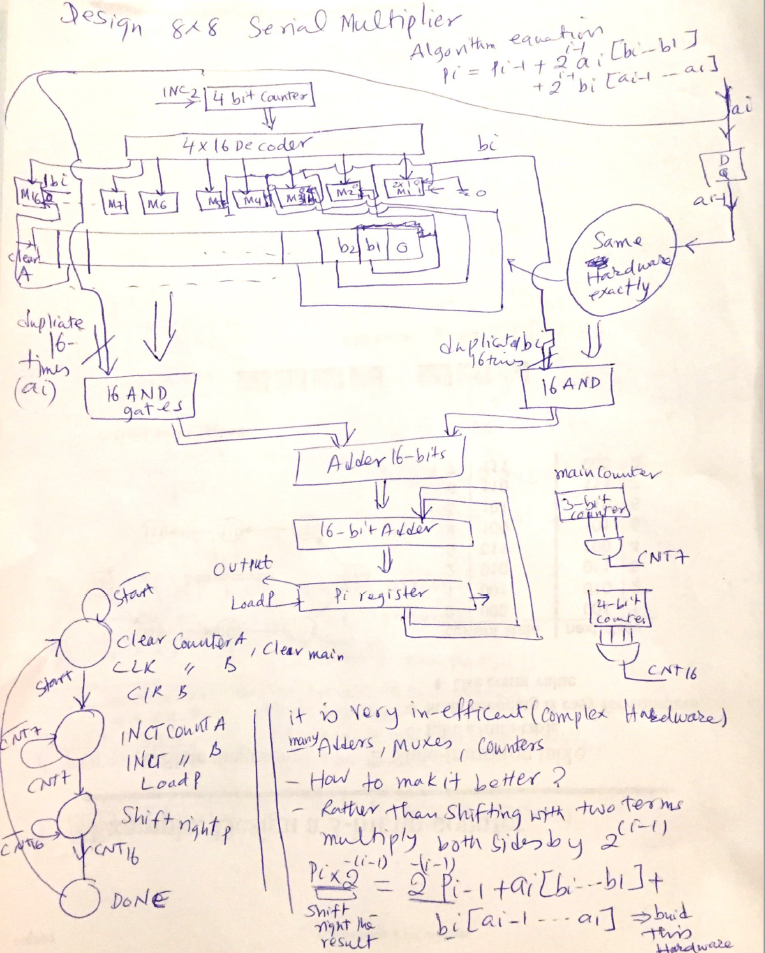 Design 8x8 Serial Multiplier
Algorithm equation
Pi = Pi-1 + 2^i-1 ai [bi--b1]
+ 2^i-1 bi [ai-1 -- a1]
INC2
4 bit counter
4x16 Decoder
bi
ai
D
Q
ai-1
M16
bi
M7
M6
M4
M3
M2
M1
0
clear
A
b2
b1
0
Same
Hardware
exactly
dupliate
16-
times
(ai)
duplicate bi
16 times
16 AND
gates
16 AND
Adder 16-bits
16-bit Adder
Output
LoadP
Pi register
main counter
3-bit
counter
CNT7
4-bit
counter
CNT16
Start
Clear Counter A, Clear main
CLK " B
CLR B
Start
CNT7
INCT Count A
INCT " B
LoadP
CNT7
Shift right P
CNT16
CNT16
DONE
it is very in-efficent (Complex Hardware)
many Adders, Muxes, Counters
- How to make it better?
- Rather than shifting with two terms
multiply both sides by 2^(i-1)
Pi x 2^-(i-1) = 2^-(i-1) Pi-1 + ai [bi...b1] +
bi [ai-1 --- a1] ⇒ buid
this
Hardware
Shift
right the
result